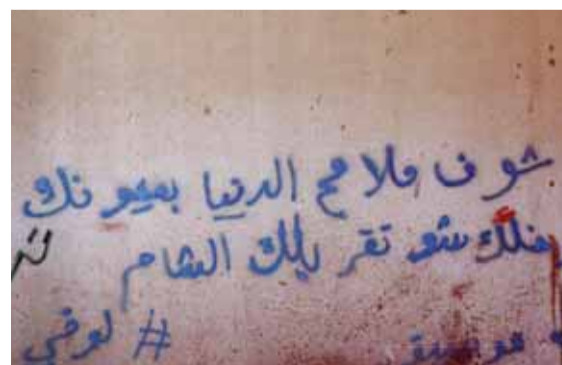 شوف ملامح الدنيا بعيونك
شو تقربلك الشام
# لوفي